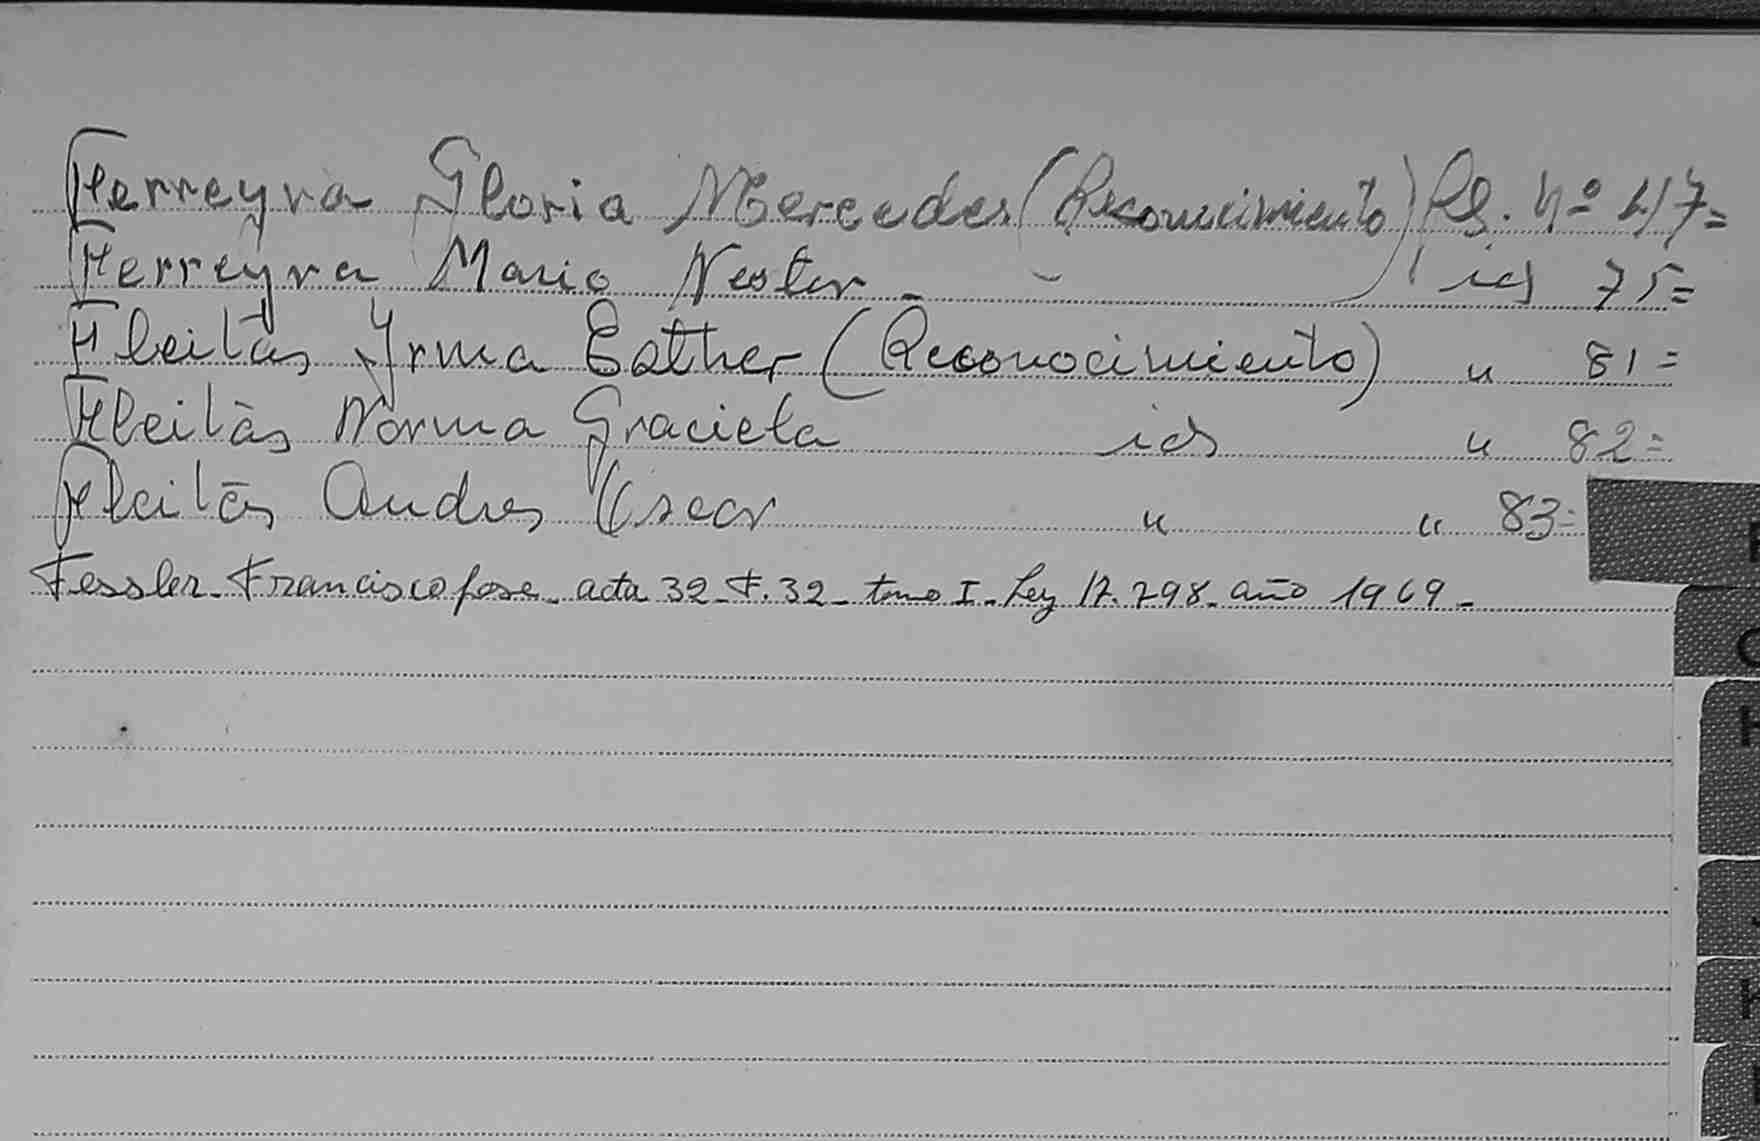 Ferreyra Gloria Mercedes (Reconocimiento) Fs. Nº 47=
Ferreyra Mario Nestor - id 75=
Fleitas Yrma Esther (Reconocimiento) " 81=
Fleitas Norma Graciela id " 82=
Fleitas Andres Oscar " " 83=
Fessler Francisco Jose - acta 32 - F. 32 - tomo I - Ley 17.798 - año 1969 -